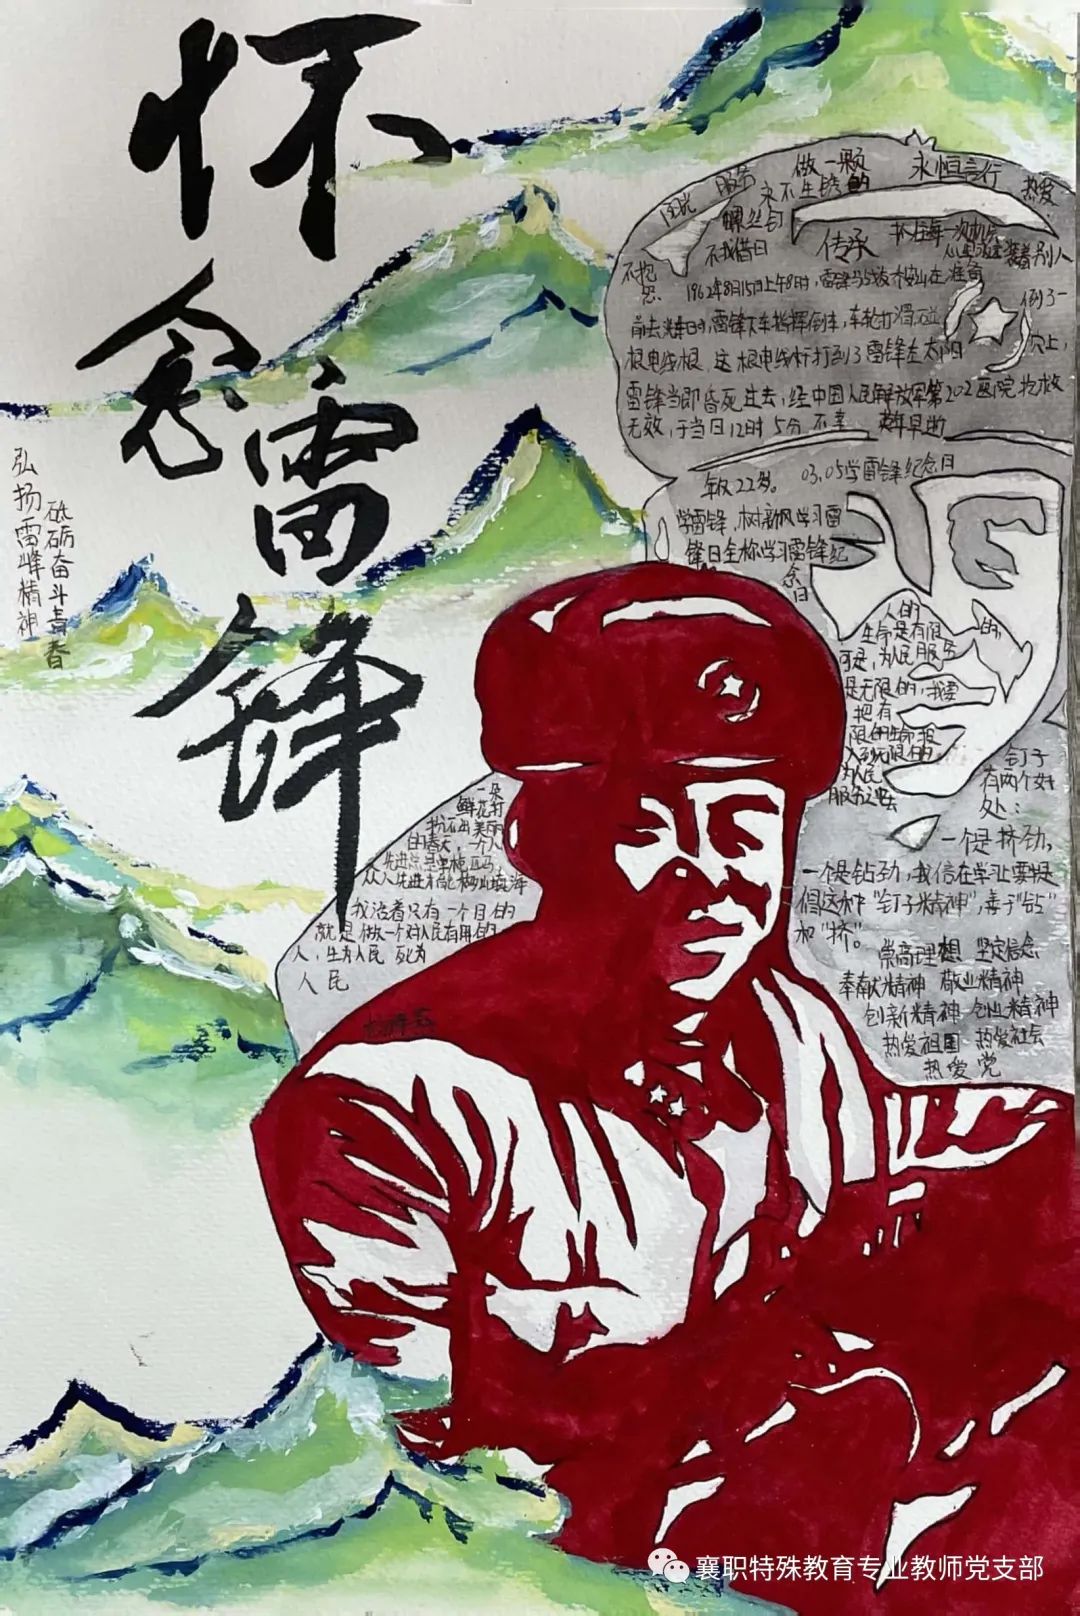 怀念雷锋
弘扬雷峰精神
砥砺奋斗青春
服务
做一颗
永不生锈的
螺丝钉
永恒言行
热爱
不抱
怨
不找借口
传承
抓住每一次机会
别人
1962年8月15日上午8时，雷锋与战友乔安山在准备
前去 时，雷锋下车指挥倒车，车轮打滑碰倒了一
根电线杆，这根电线杆打到了雷锋左太阳穴上，
雷锋当即昏死过去，经中国人民解放军第202医院抢救
无效，于当日12时5分不幸 英年早逝
年仅22岁。 03.05学雷锋纪念日
学雷锋，树新风学习雷
锋日全称学习雷锋纪
念日
人的
生命是有限的，
可是，为人民服务
是无限的，我要
把有
限的生命投
入到无限的
为人民
服务之中去
钉子
有两个好
处：
一个是挤劲，
一个是钻劲，我们在学习上要提
倡这种"钉子精神"，善于"钻"
和"挤"。
崇高理想 坚定信念
奉献精神 敬业精神
创新精神 创业精神
热爱祖国 热爱社会
热爱党
一朵
鲜花打
扮不出美丽
的春天，一个人
先进总是单枪匹马，
众人先进才能移山填海
我活着只有一个目的
就是做一个对人民有用的
人，生为人民 死为
人民
襄职特殊教育专业教师党支部